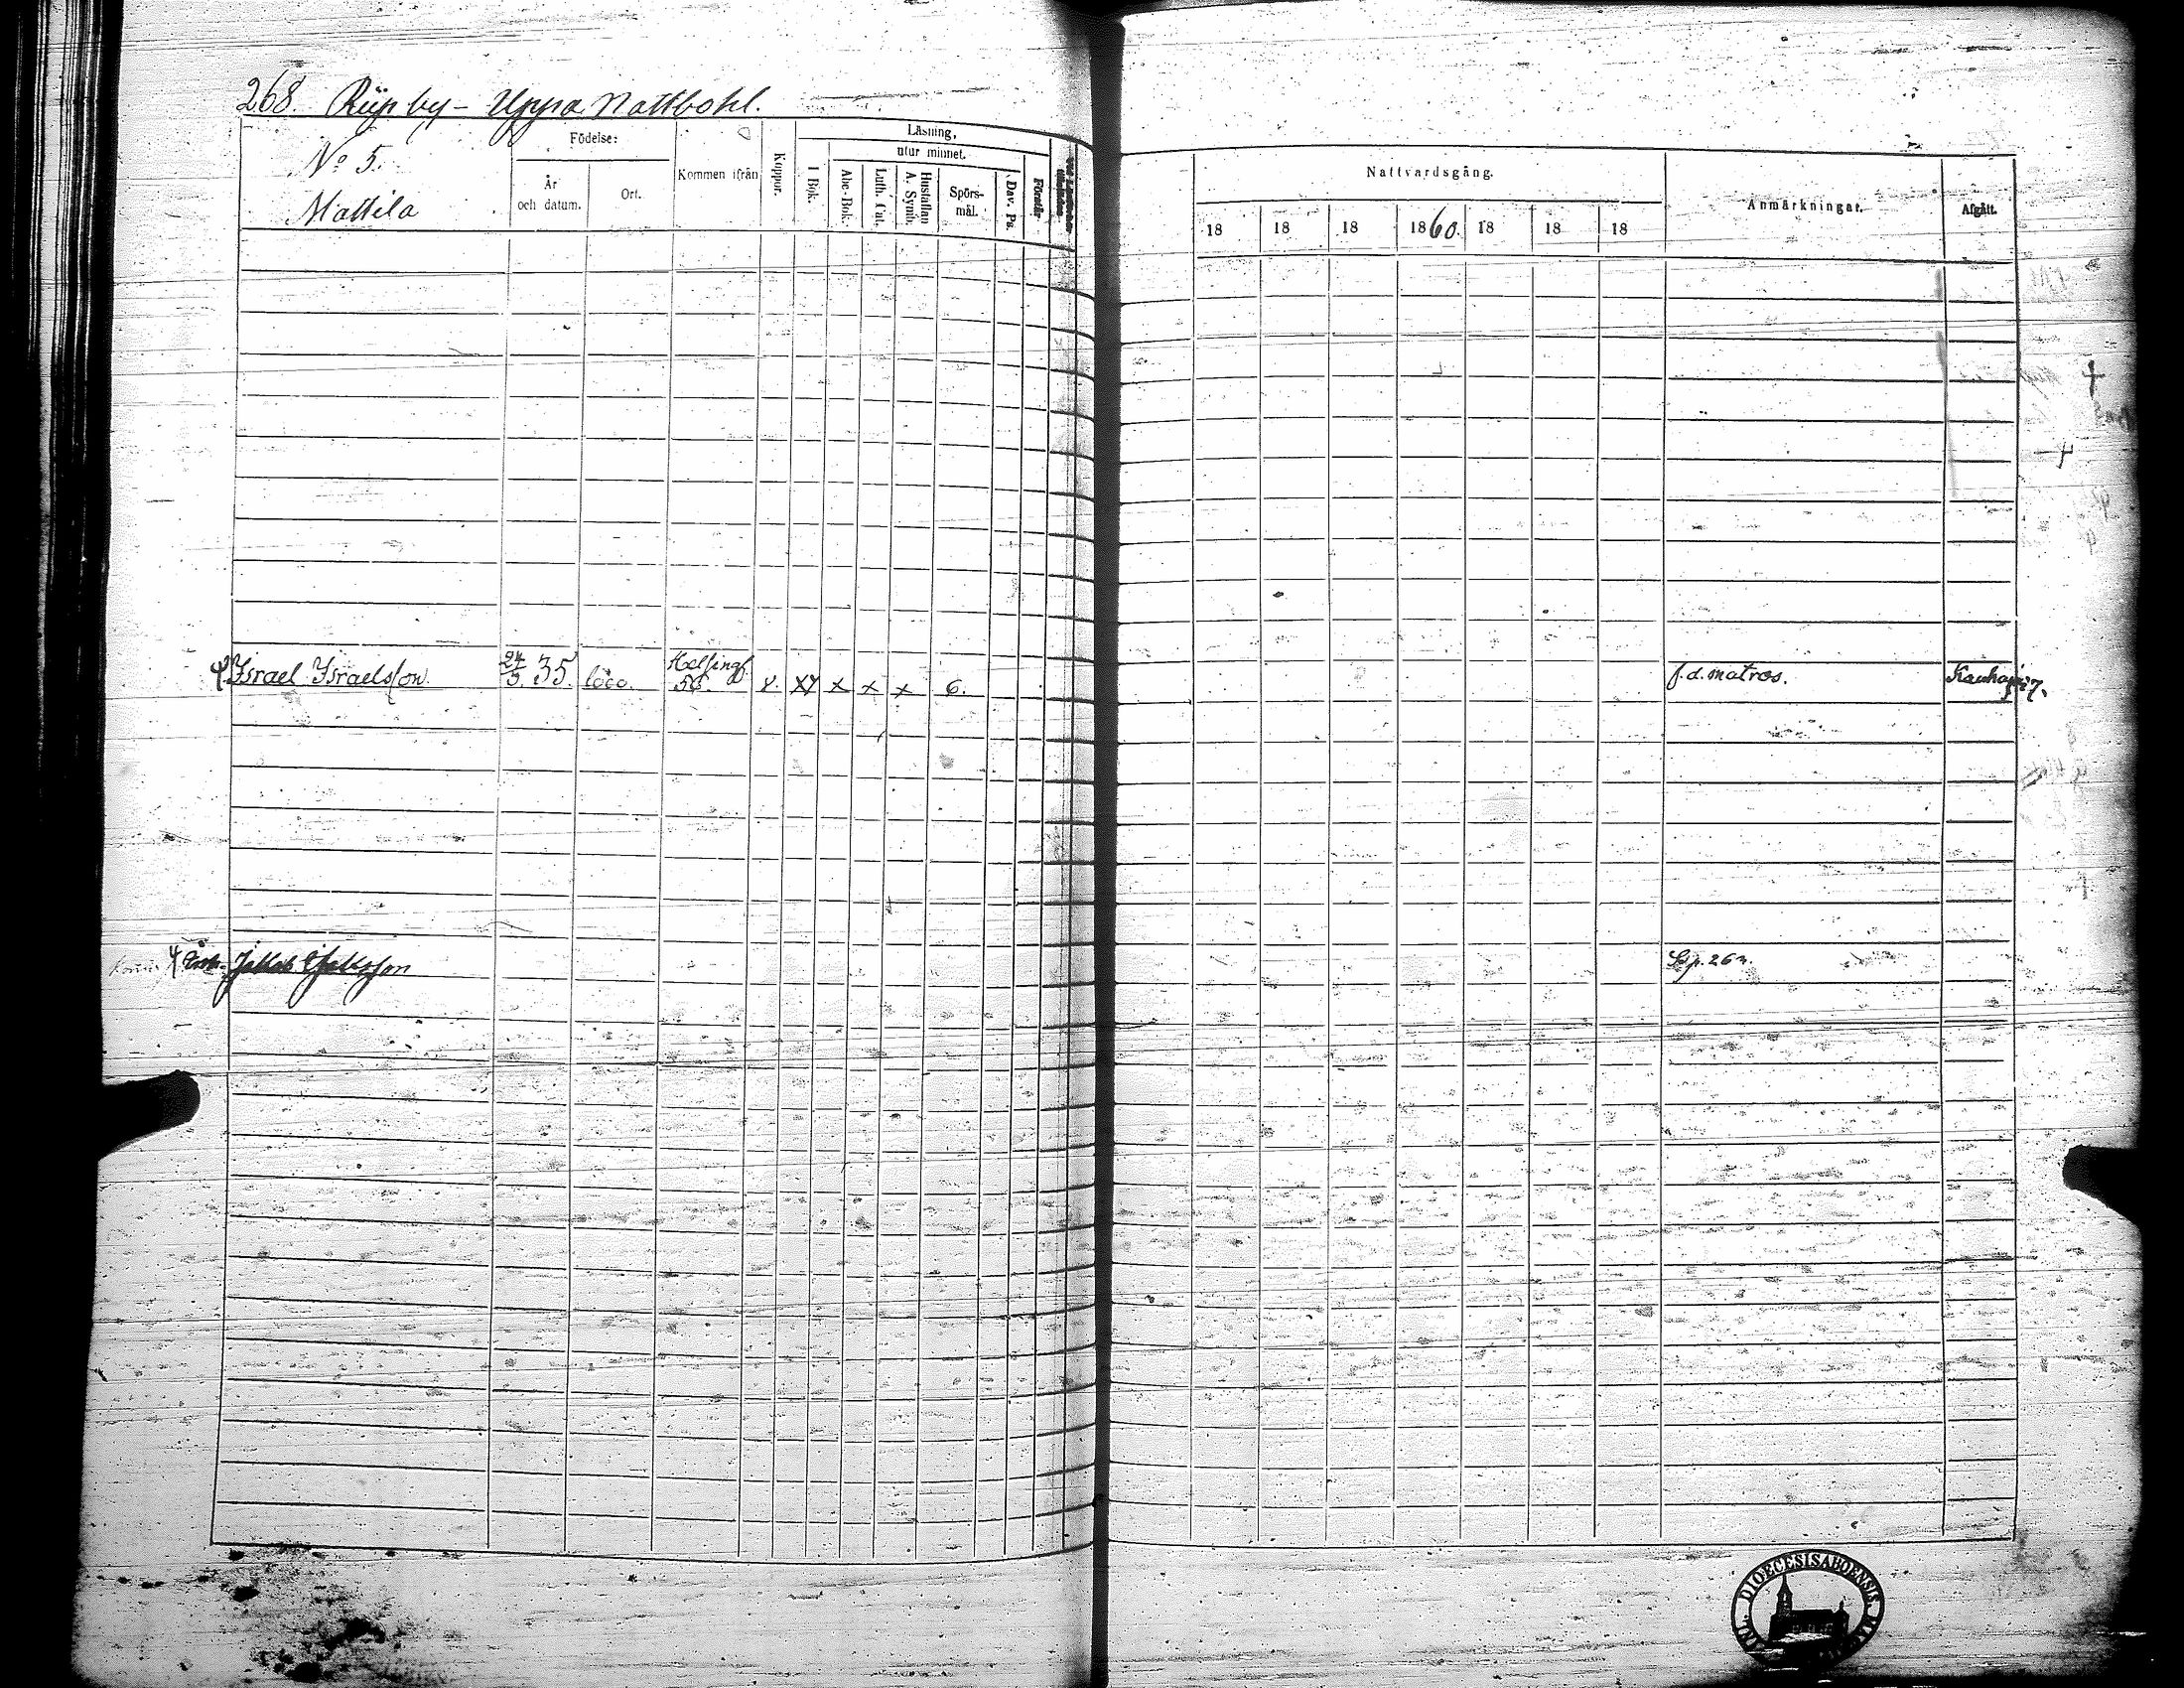 268. Riip by – Uppa Nattbohl.
No 5.
Mattila
Födelse:
År och datum.
Ort.
Kommen ifrån
Koppor.
Läsning,
I Bok.
utur minnet.
Abc-Bok.
Luth. Cat.
Hustaflan A. Symb.
Spörs-mål.
Dav. Ps.
Förstår
Nattvardsgång.
18 18 18 1860. 18 18 18
Anmärkningar.
Afgått.
Israel Israelsson 24/3. 35. loco. Helsingf. 56. x. xy x x x 6. f. d. matros.
Jakob
Sp. 262.
DIOECESIS ABOENSIS